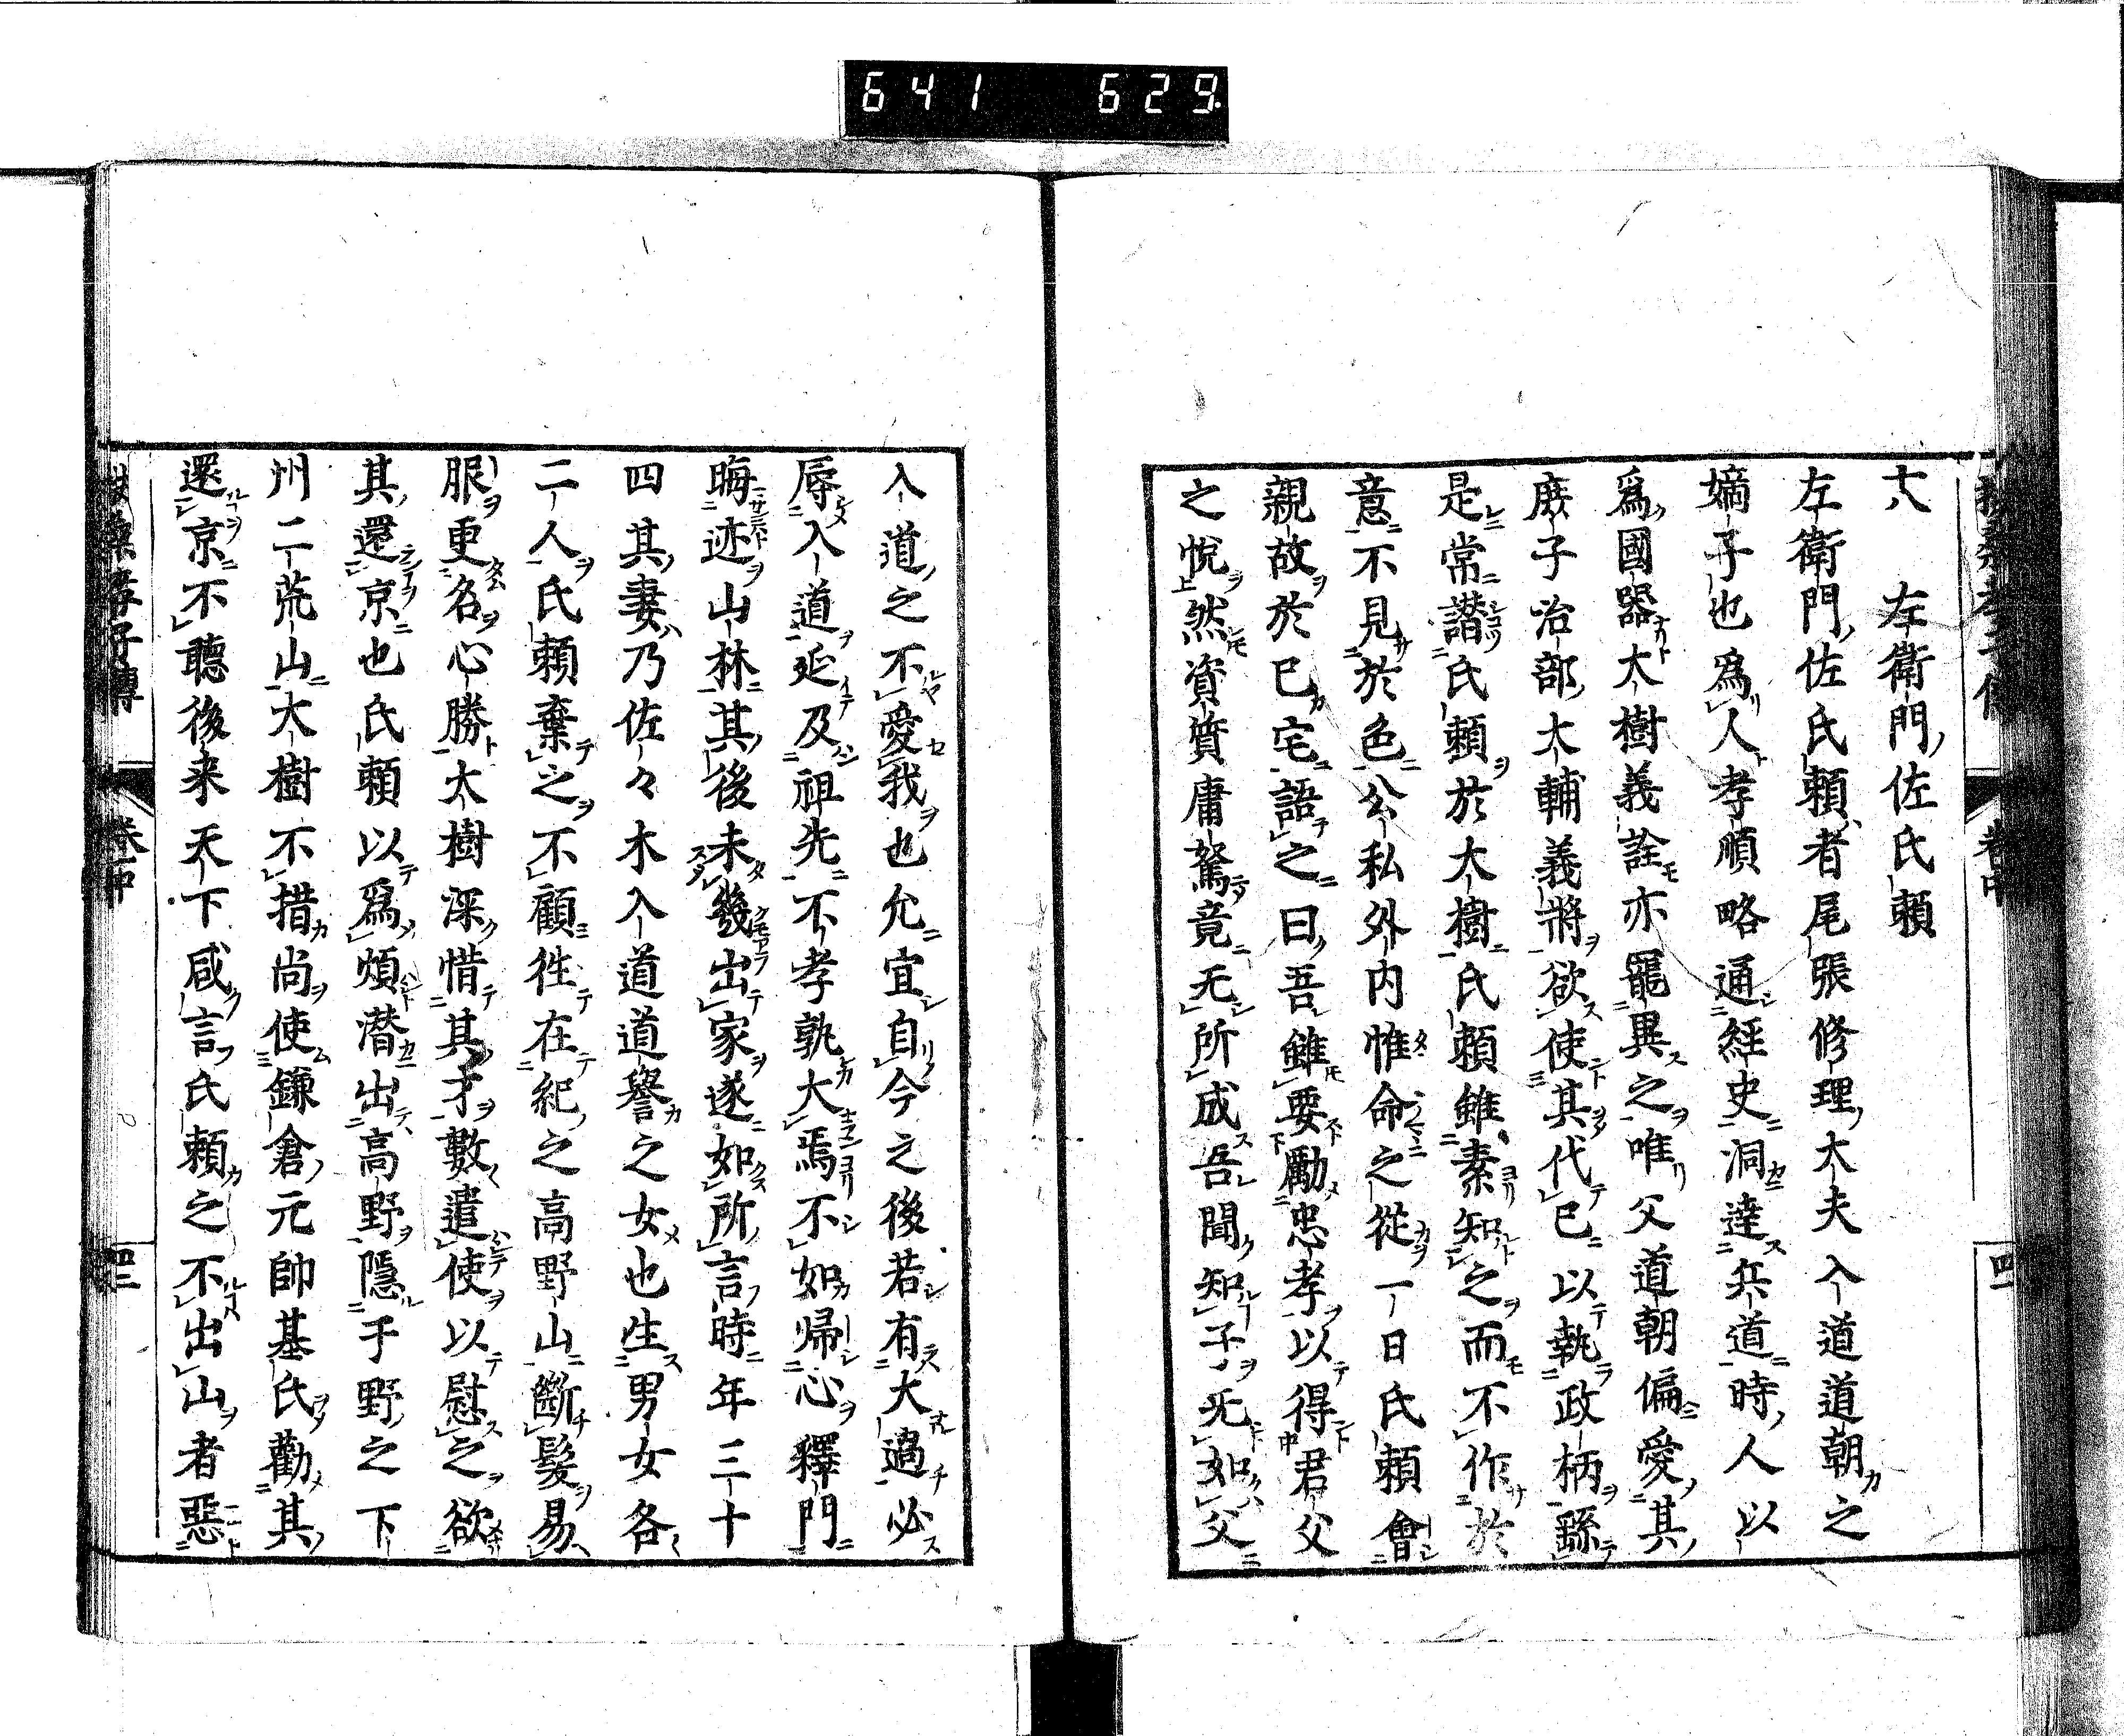 641 629
十八 左衛門佐氏頼
左衛門佐氏頼者尾張修理大夫入道道朝之
嫡子也爲人孝順略通經史洞達兵道時人以
爲國器大樹義詮亦寵異之唯父道朝偏愛其
庶子治部太輔義將欲使其代己以執政柄繇
是常譖氏頼於大樹氏頼雖素知之而不作於
意不見於色公私外内惟命之從一日氏頼會
親故於己宅語之曰吾雖要勵忠孝以得君父
之悅然資質庸駑竟无所成吾聞知子无如父
入道之不愛我也允宜自今之後若有大過必
辱入道延及祖先不孝孰大焉不如帰心釋門
晦迹山林其後未幾出家遂如所言時年三十
四其妻乃佐々木入道道譽之女也生男女各
二人氏頼棄之不顧徃在紀之高野山斷髮易
服更名心勝大樹深惜其才數遣使以慰之欲
其還京也氏頼以爲煩潜出高野隱于野之下
州二荒山大樹不措尚使鎌倉元帥基氏勸其
還京不聽後来天下咸言氏頼之不出山者惡
扶桑孝子傳 卷中 四一
扶桑孝子傳 卷中 四二